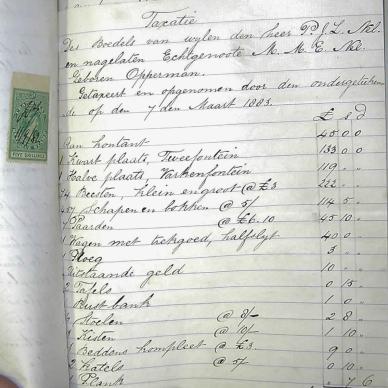 Taxatie
Des Boedels van wylen den heer P. J. L. Nel.
en nagelaten Echtgenoote M. M. E. Nel.
Geboren Opperman.
Getaxeert en opgenomen door den ondergeteken
de op den 7 den Maart 1883.
£ s d
Aan kontant 45 0 0
1 Kwart plaats, Tweefontein 133 0 0
1 Halve plaats, Varkenfontein 119 " "
74 Beesten, klein en groot @ £3 222 " "
457 Schapen en bokken @ 5/ 114 5 "
7 Paarden @ £6.10 45 10 "
1 Wagen met trekgoed, halfslyt 40 0 "
1 Ploeg 3 " "
Uitstaande geld 10 " "
2 Tafels 0 15 "
Rust bank 1 0 "
Stoelen @ 8/- 2 8 "
3 Kisten @ 10/- 1 10 "
3 Beddens kompleet @ £3 9 0 "
2 Katels @ 5/ 0 10 "
1 Plank " 7 6
FIVE SHILLINGS